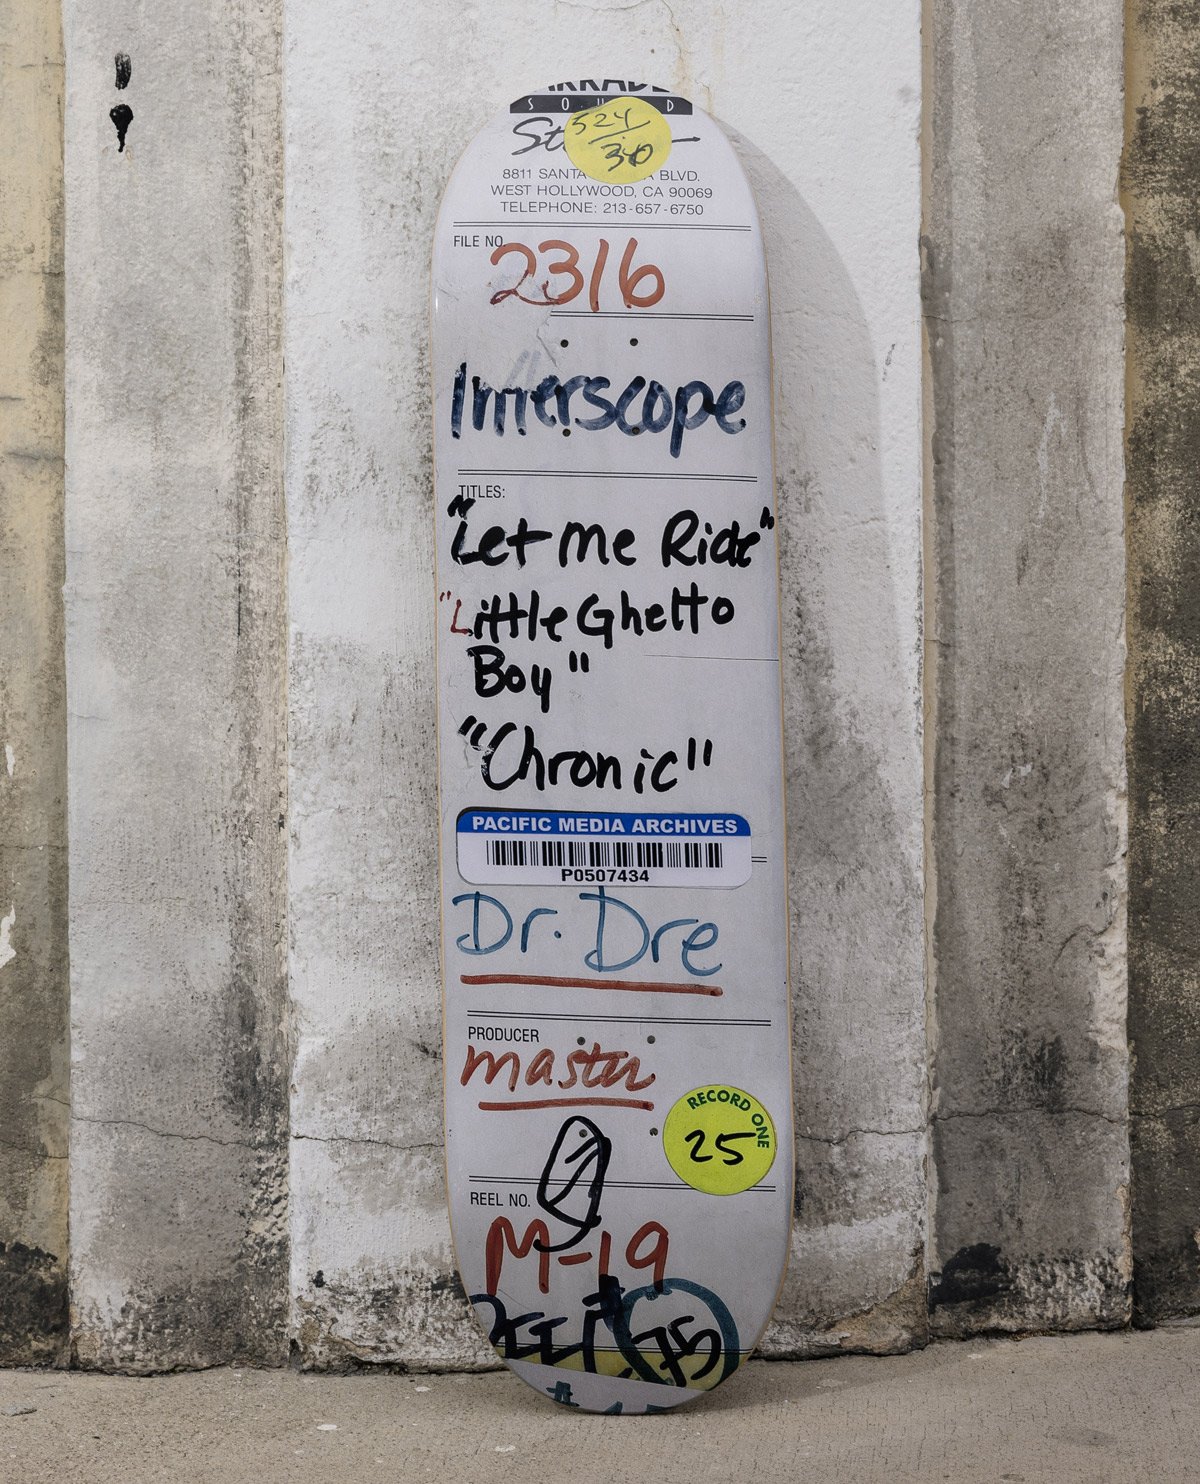 SOUND
524/30
8811 SANTA BLVD.
WEST HOLLYWOOD, CA 90069
TELEPHONE: 213-657-6750
FILE NO.
2316
Interscope
TITLES:
"Let me Ride"
"Little Ghetto
Boy"
"Chronic"
PACIFIC MEDIA ARCHIVES
P0507434
Dr. Dre
PRODUCER
master
RECORD ONE
25
REEL NO.
M-19
REEL #75
#